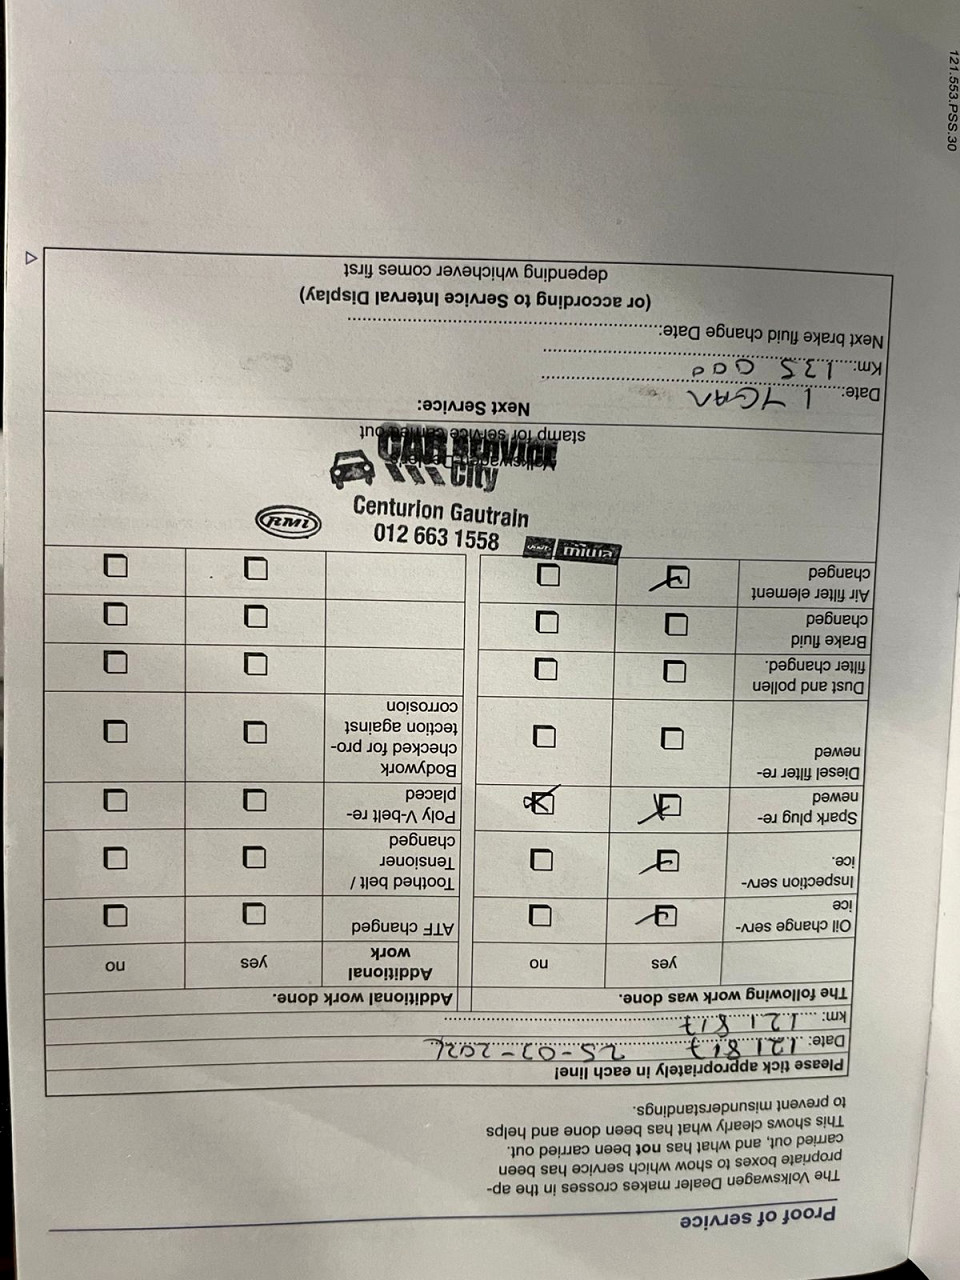 Proof of service
The Volkswagen Dealer makes crosses in the ap-
propriate boxes to show which service has been
carried out, and what has not been carried out.
This shows clearly what has been done and helps
to prevent misunderstandings.
Please tick appropriately in each line!
Date: 121 817
km: 121 817
The following work was done.
yes
no
Oil change serv-
ice
Inspection serv-
ice.
Spark plug re-
newed
Diesel filter re-
newed
Dust and pollen
filter changed.
Brake fluid
changed
Air filter element
changed
Additional work done.
Additional
work
yes
no
ATF changed
Toothed belt /
Tensioner
changed
Poly V-belt re-
placed
Bodywork
checked for pro-
tection against
corrosion
Volkswagen Dealer's
stamp for service carried out
CAR SERVICE
City
Centurion Gautrain
012 663 1558
RMI
miwa
Next Service:
Date: 1 YEAR
Km: 135 000
Next brake fluid change Date:
(or according to Service Interval Display)
depending whichever comes first
121.553.PSS.30